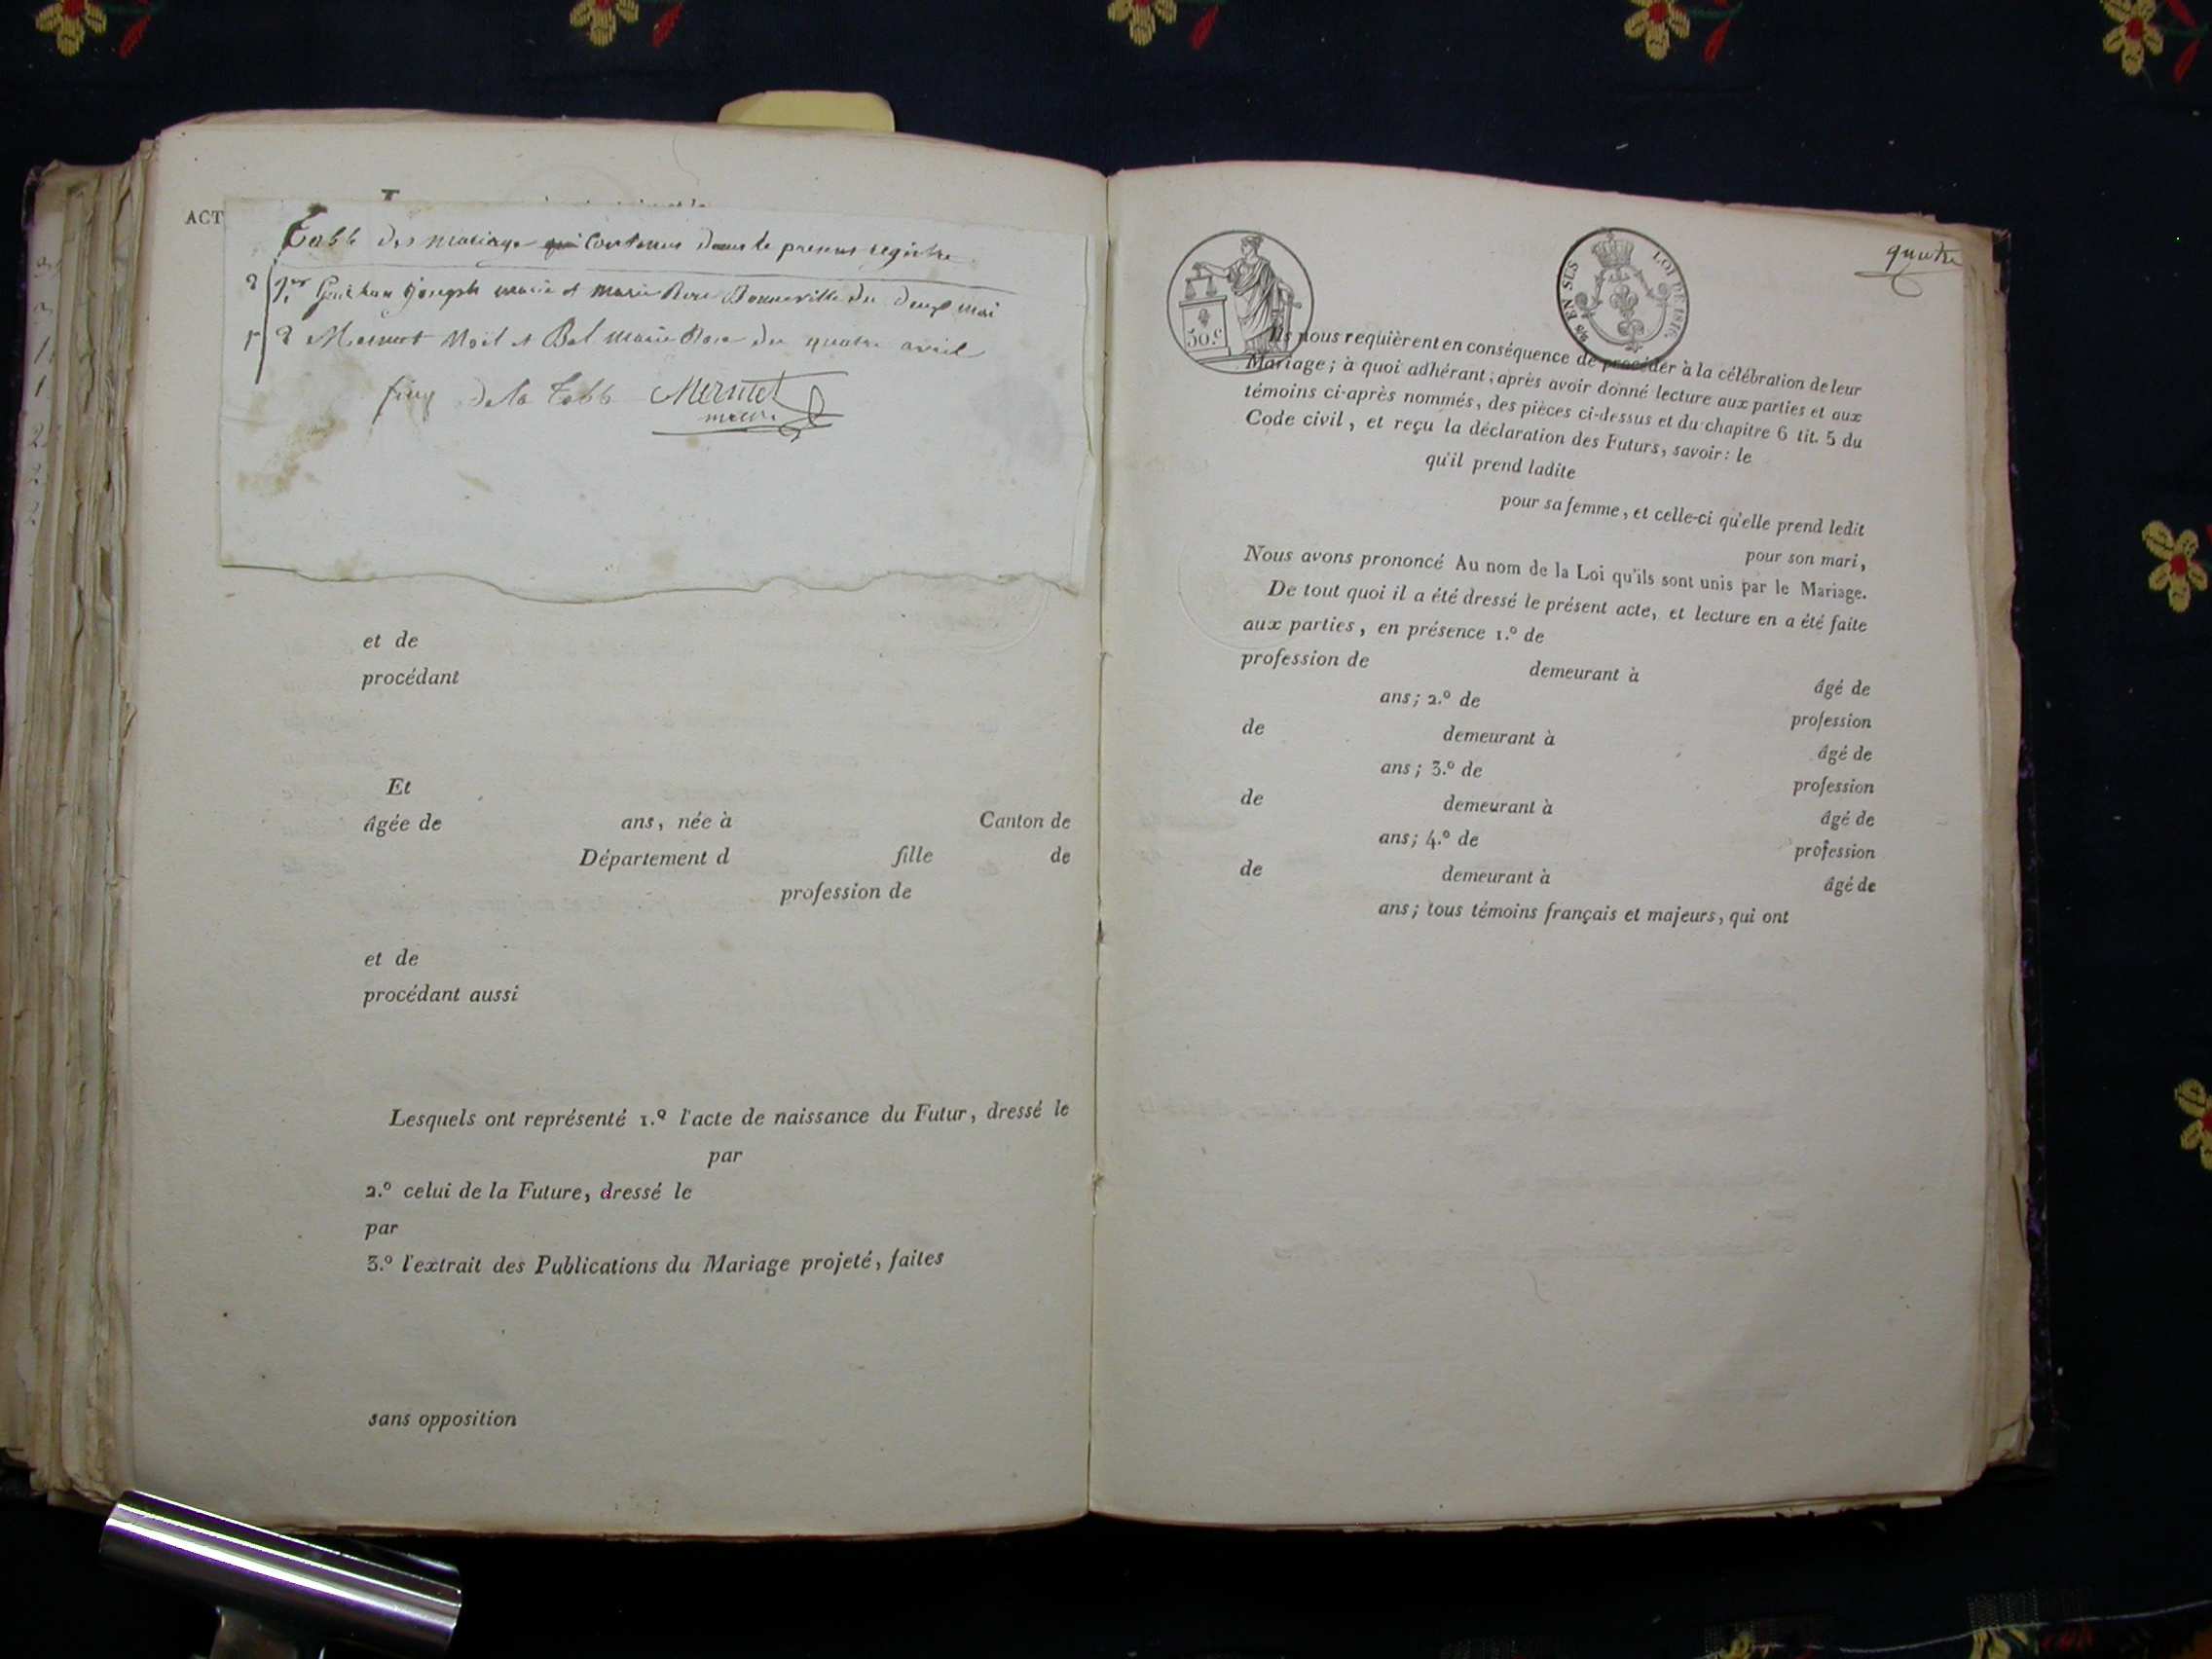 ACT
Table des mariage contenus dans le present registre
2 1er joseph marie et marie Rose Bonneville du deux mai
1 2 Mermet Noël et Bal marie Rose du quatre avril
fin de la Table Mermet
maire
et de
procédant
Et
âgée de ans, née à Canton de
Département d fille de
profession de
et de
procédant aussi
Lesquels ont représenté 1.º l'acte de naissance du Futur, dressé le
par
2.º celui de la Future, dressé le
par
3.º l'extrait des Publications du Mariage projeté, faites
sans opposition
50 c
EN SUS LOI DE 1816
quatre
Ils nous requièrent en conséquence de procéder à la célébration de leur
Mariage; à quoi adhérant, après avoir donné lecture aux parties et aux
témoins ci-après nommés, des pièces ci-dessus et du chapitre 6 tit. 5 du
Code civil, et reçu la déclaration des Futurs, savoir: le
qu'il prend ladite
pour sa femme, et celle-ci qu'elle prend ledit
pour son mari,
Nous avons prononcé Au nom de la Loi qu'ils sont unis par le Mariage.
De tout quoi il a été dressé le présent acte, et lecture en a été faite
aux parties, en présence 1.º de
profession de demeurant à âgé de
ans; 2.º de profession
de demeurant à âgé de
ans; 3.º de profession
de demeurant à âgé de
ans; 4.º de profession
de demeurant à âgé de
ans; tous témoins français et majeurs, qui ont